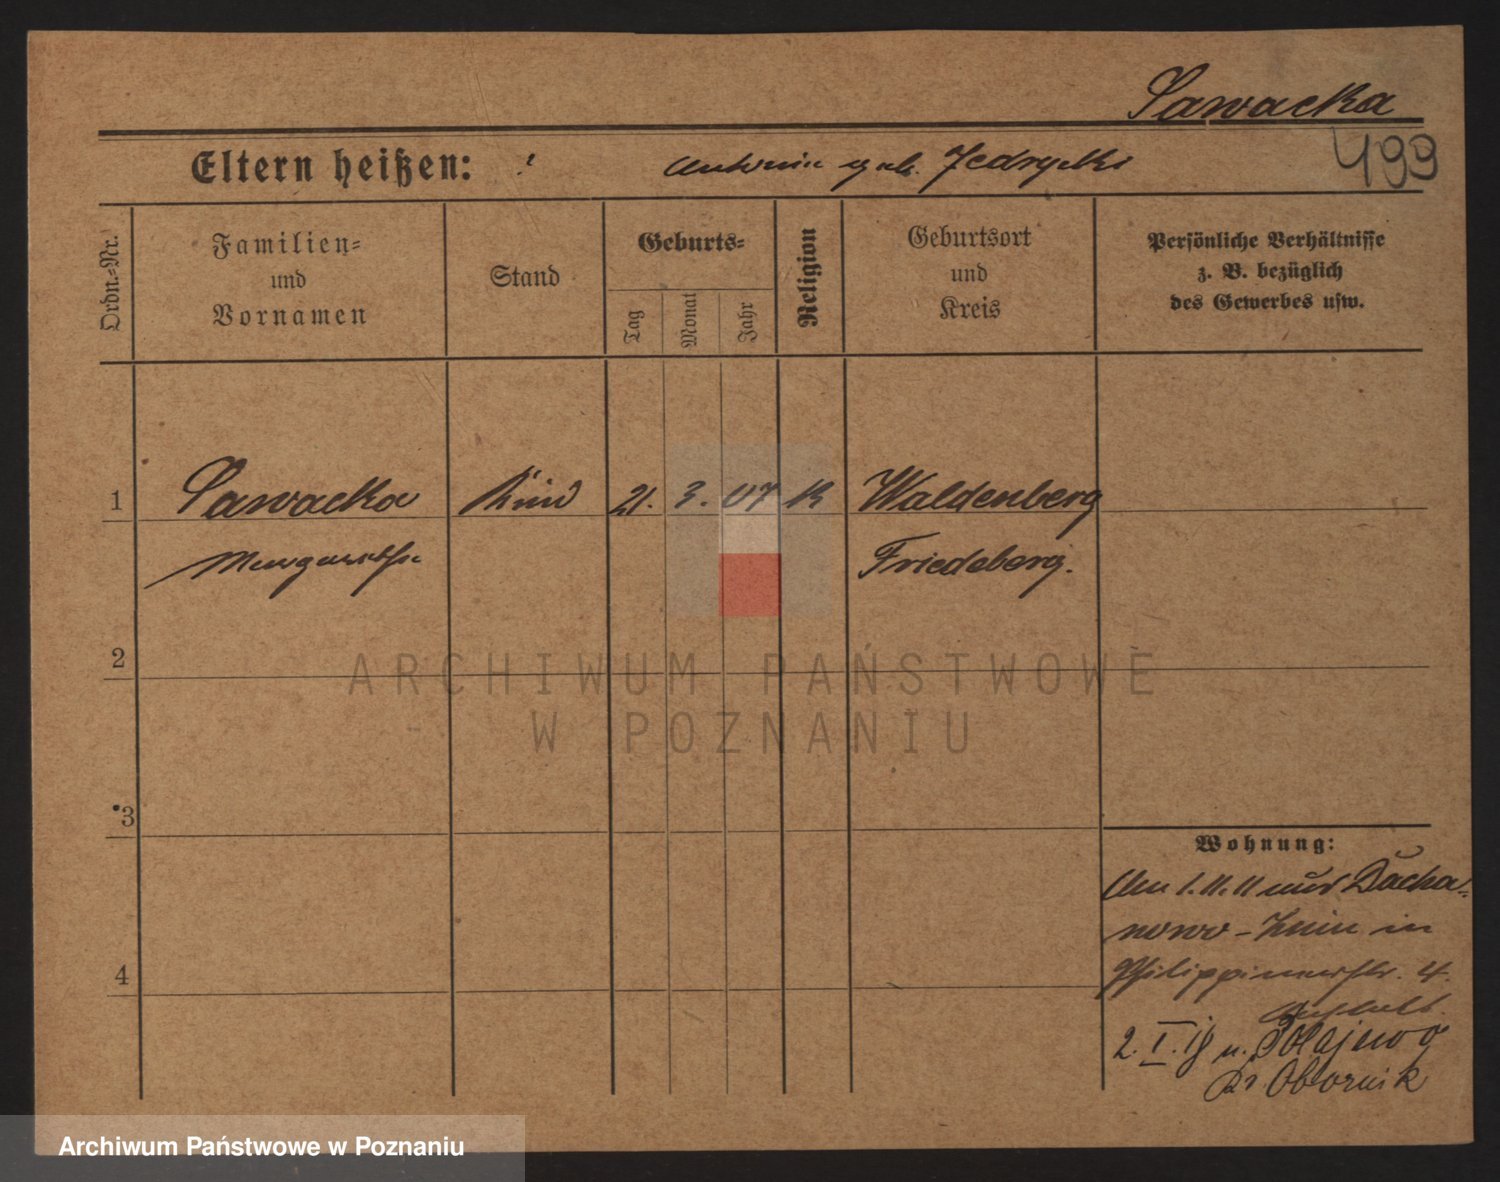 Sawacka
499
Eltern heißen: ? Antonie geb. Jedrycki
Ordn.=Nr.
Familien=
und
Vornamen
Stand
Geburts=
Tag
Monat
Jahr
Religion
Geburtsort
und
Kreis
Persönliche Verhältnisse
z. B. bezüglich
des Gewerbes usw.
1 Sawacka Kind 21. 3. 07 K Waldenberg
Margarethe Friedeberg.
2
ARCHIWUM PAŃSTWOWE
W POZNANIU
3
Wohnung:
Am 1. 11. 11 aus
in
4
Philippinenstr. 4.
2. I. n. Polajewo
Kr. Obornik
Archiwum Państwowe w Poznaniu